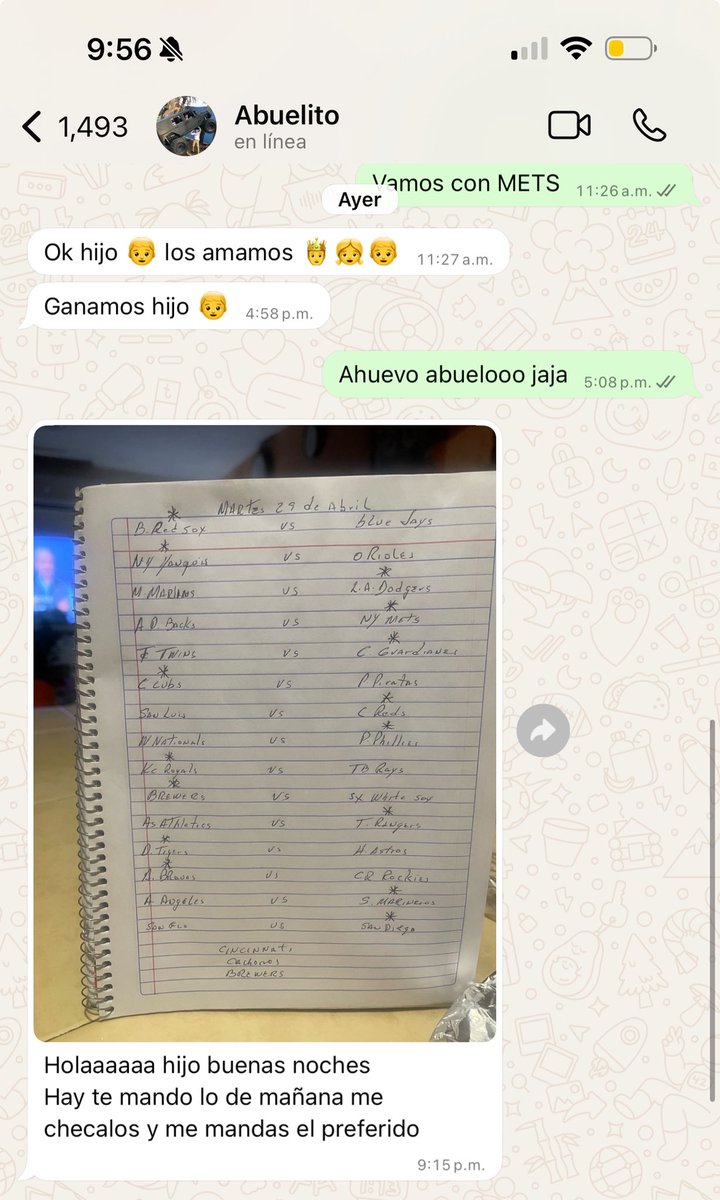 9:56
1,493
Abuelito
en línea
Vamos con METS 11:26 a.m.
Ayer
Ok hijo 👦 los amamos 🤴👧👦 11:27 a.m.
Ganamos hijo 👦 4:58 p.m.
Ahuevo abuelooo jaja 5:08 p.m.
MARTES 29 de Abril
B. Red Sox vs blue Jays
NY Yanquis vs ORioles
M. MARlins vs L.A. Dodgers
A D. Backs vs NY Mets
TWINS vs C. GuardianEs
C Cubs vs P Piratas
SAN Luis vs C Reds
W Nationals vs P Phillies
Kc Royals vs TB Rays
BREWERS vs White Sox
As AthleTics vs T. RangeRs
D. Tigers vs H. Astros
A. BRavos vs Rockies
A Angeles vs S. MARINEROS
vs SAN Diego
CINCINNATI
CachoRos
BREWERS
Holaaaaaa hijo buenas noches
Hay te mando lo de mañana me
checalos y me mandas el preferido
9:15 p.m.